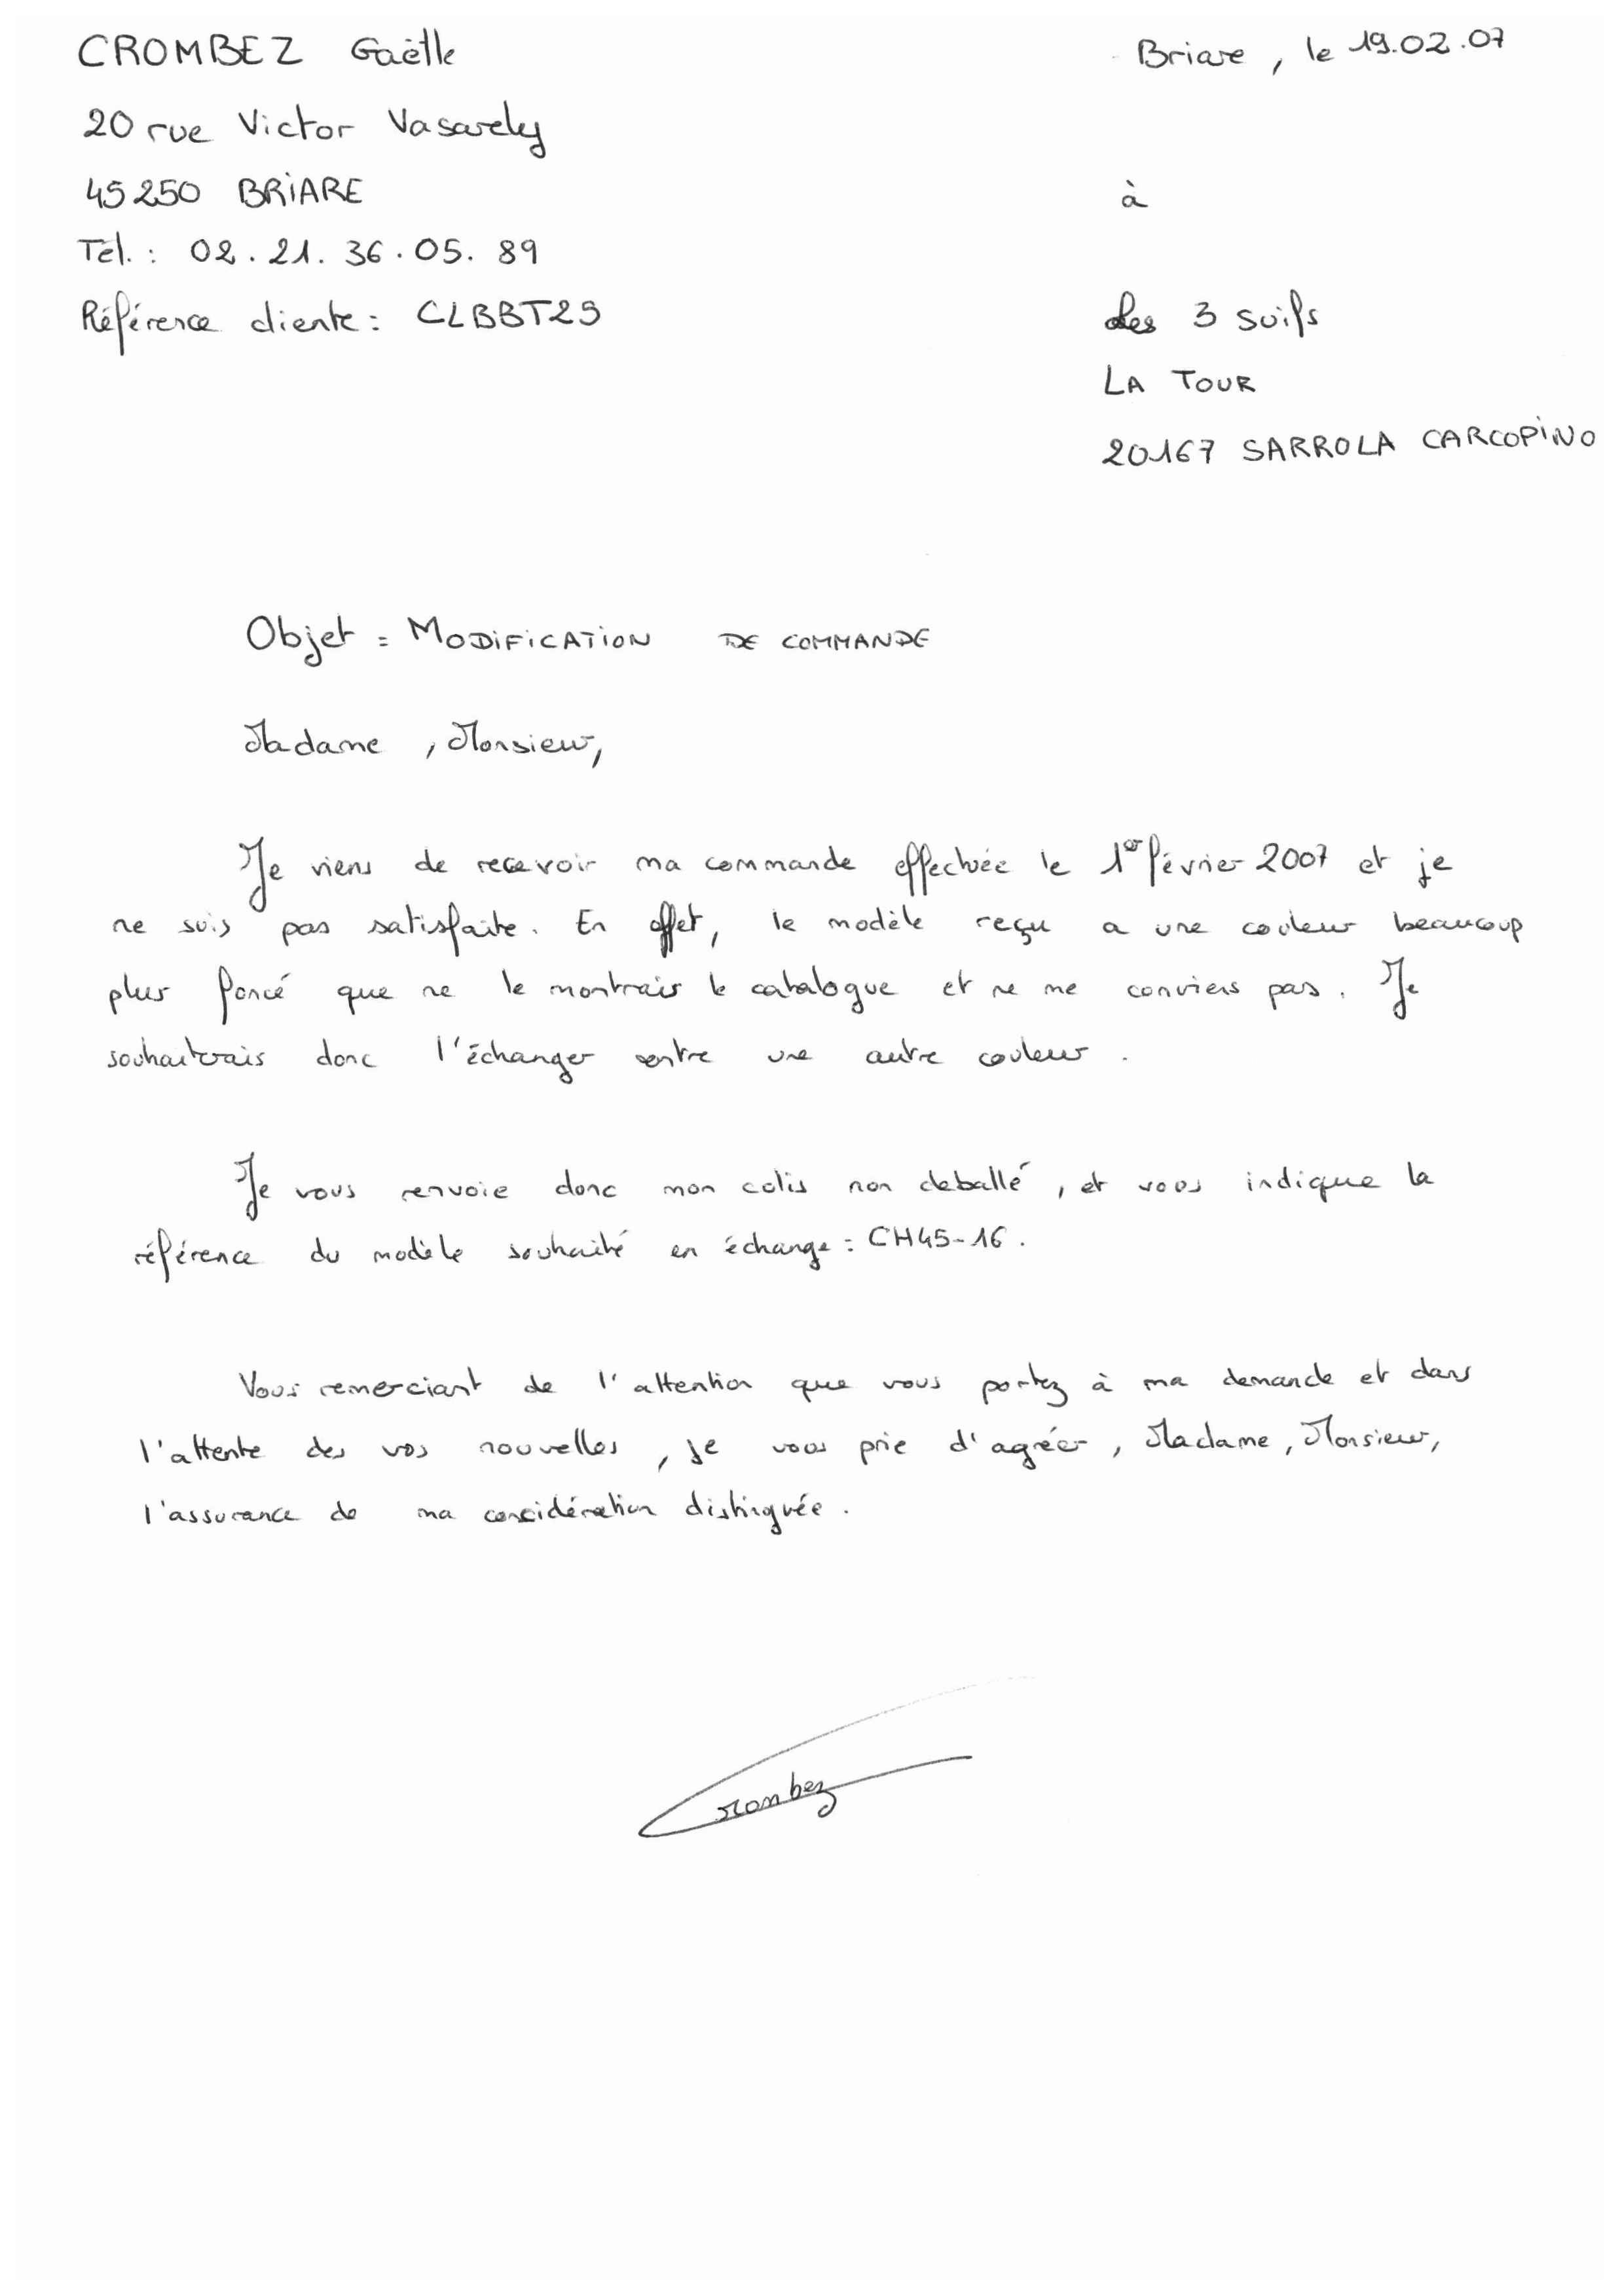 CROMBEZ Gaëlle
Briare, le 19.02.07
20 rue Victor Vasarely
45250 BRIARE
à
Tél. : 02.21.36.05.89
Référence cliente : CLBBT29
Les 3 suifs
LA TOUR
20167 SARROLA CARCOPINO
Objet : MODIFICATION DE COMMANDE
Madame, Monsieur,
Je viens de recevoir ma commande effectuée le 1er février 2007 et je
ne suis pas satisfaite. En effet, le modèle reçu a une couleur beaucoup
plus foncé que ne le montrais le catalogue et ne me conviens pas. Je
souhaiterais donc l'échanger contre une autre couleur.
Je vous renvoie donc mon colis non deballé, et vous indique la
référence du modèle souhaité en échange : CH45-16.
Vous remerciant de l'attention que vous portez à ma demande et dans
l'attente des vos nouvelles, je vous prie d'agréer, Madame, Monsieur,
l'assurance de ma considération distinguée.
Crombez